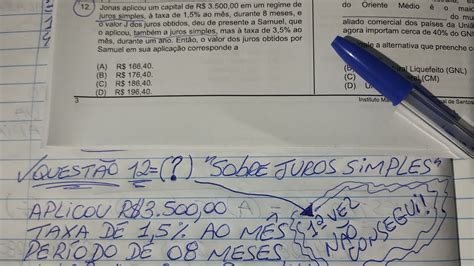 12. Jonas aplicou um capital de R$ 3.500,00 em um regime de
juros simples, à taxa de 1,5% ao mês, durante 8 meses, e
o valor J dos juros obtidos, deu de presente a Samuel, que
o aplicou, também a juros simples, mas à taxa de 3,5% ao
mês, durante um ano. Então, o valor dos juros obtidos por
Samuel em sua aplicação corresponde a
(A) R$ 166,40.
(B) R$ 176,40.
(C) R$ 186,40.
(D) R$ 196,40.
3
do Oriente Médio é o
do mu
aliado comercial dos países da Uniã
agora importam cerca de 40% do GNL
a alternativa que preenche
Liquefeito (GNL)
(CM)
(D)
Instituto
de Santos
√QUESTÃO 12=(?) "SOBRE JUROS SIMPLES"
APLICOU R$3.500,00
TAXA DE 1,5% AO MÊS
PERÍODO DE 08 MESES
1ª VEZ
NÃO
CONSEGUI!